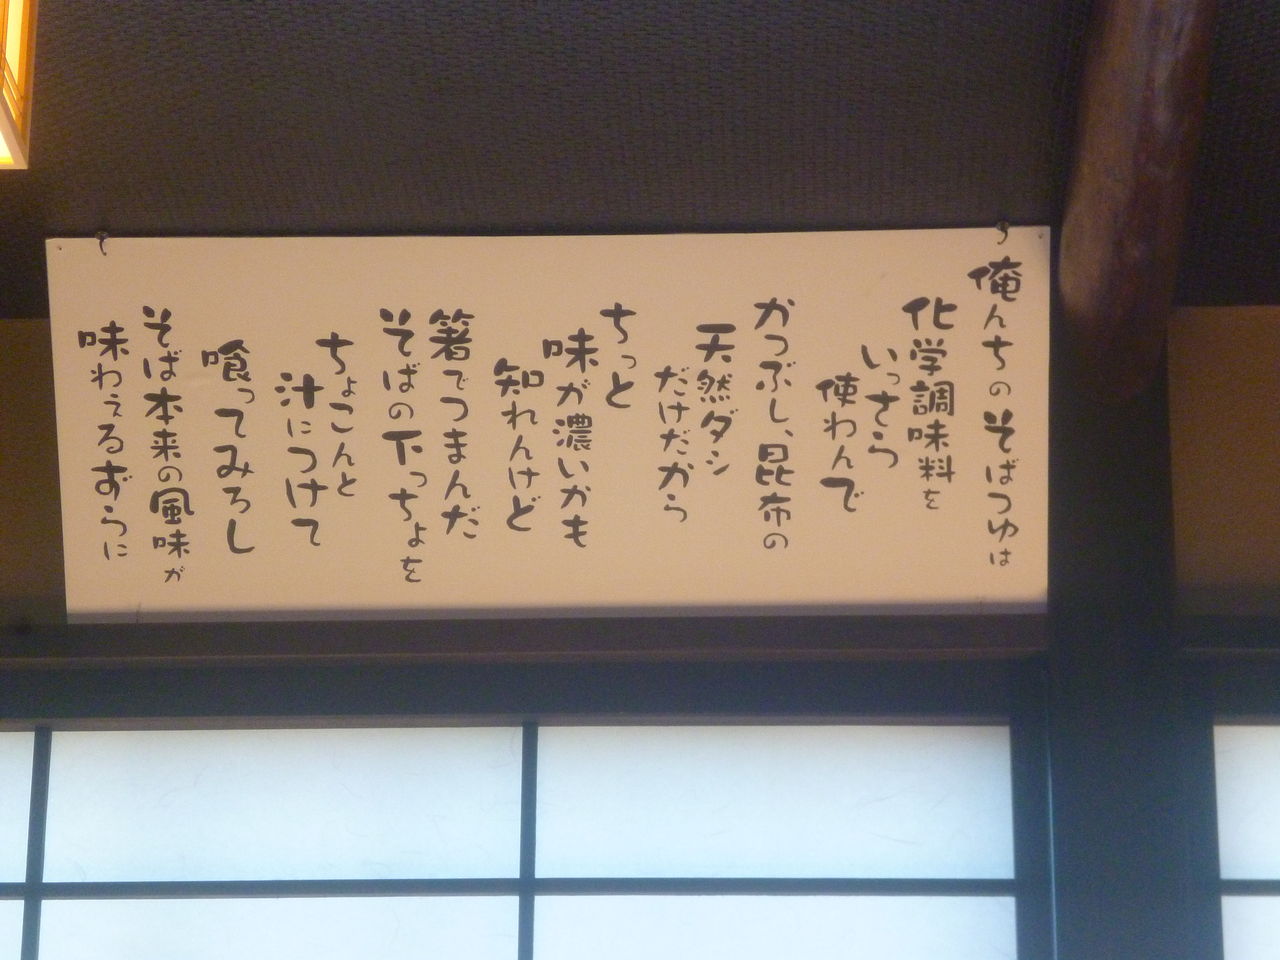 俺んちのそばつゆは
化学調味料を
いっさら
使わんで
かつぶし、昆布の
天然ダシ
だけだから
ちっと
味が濃いかも
知れんけど
箸でつまんだ
そばの下っちょを
ちょこんと
汁につけて
喰ってみろし
そば本来の風味が
味わえるずらに